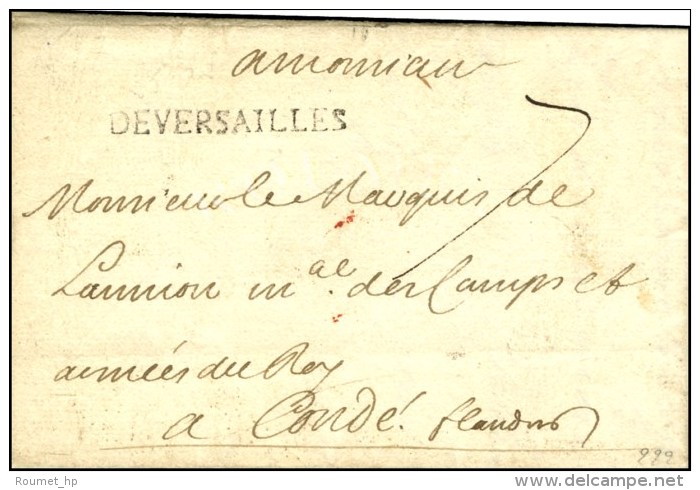 a monsieur
DEVERSAILLES
Monsieur le Marquis de
Lannion m.al des Camps et
armées du Roy
a Condé. flandres
7
222
Roumet_hp
delcampe.net